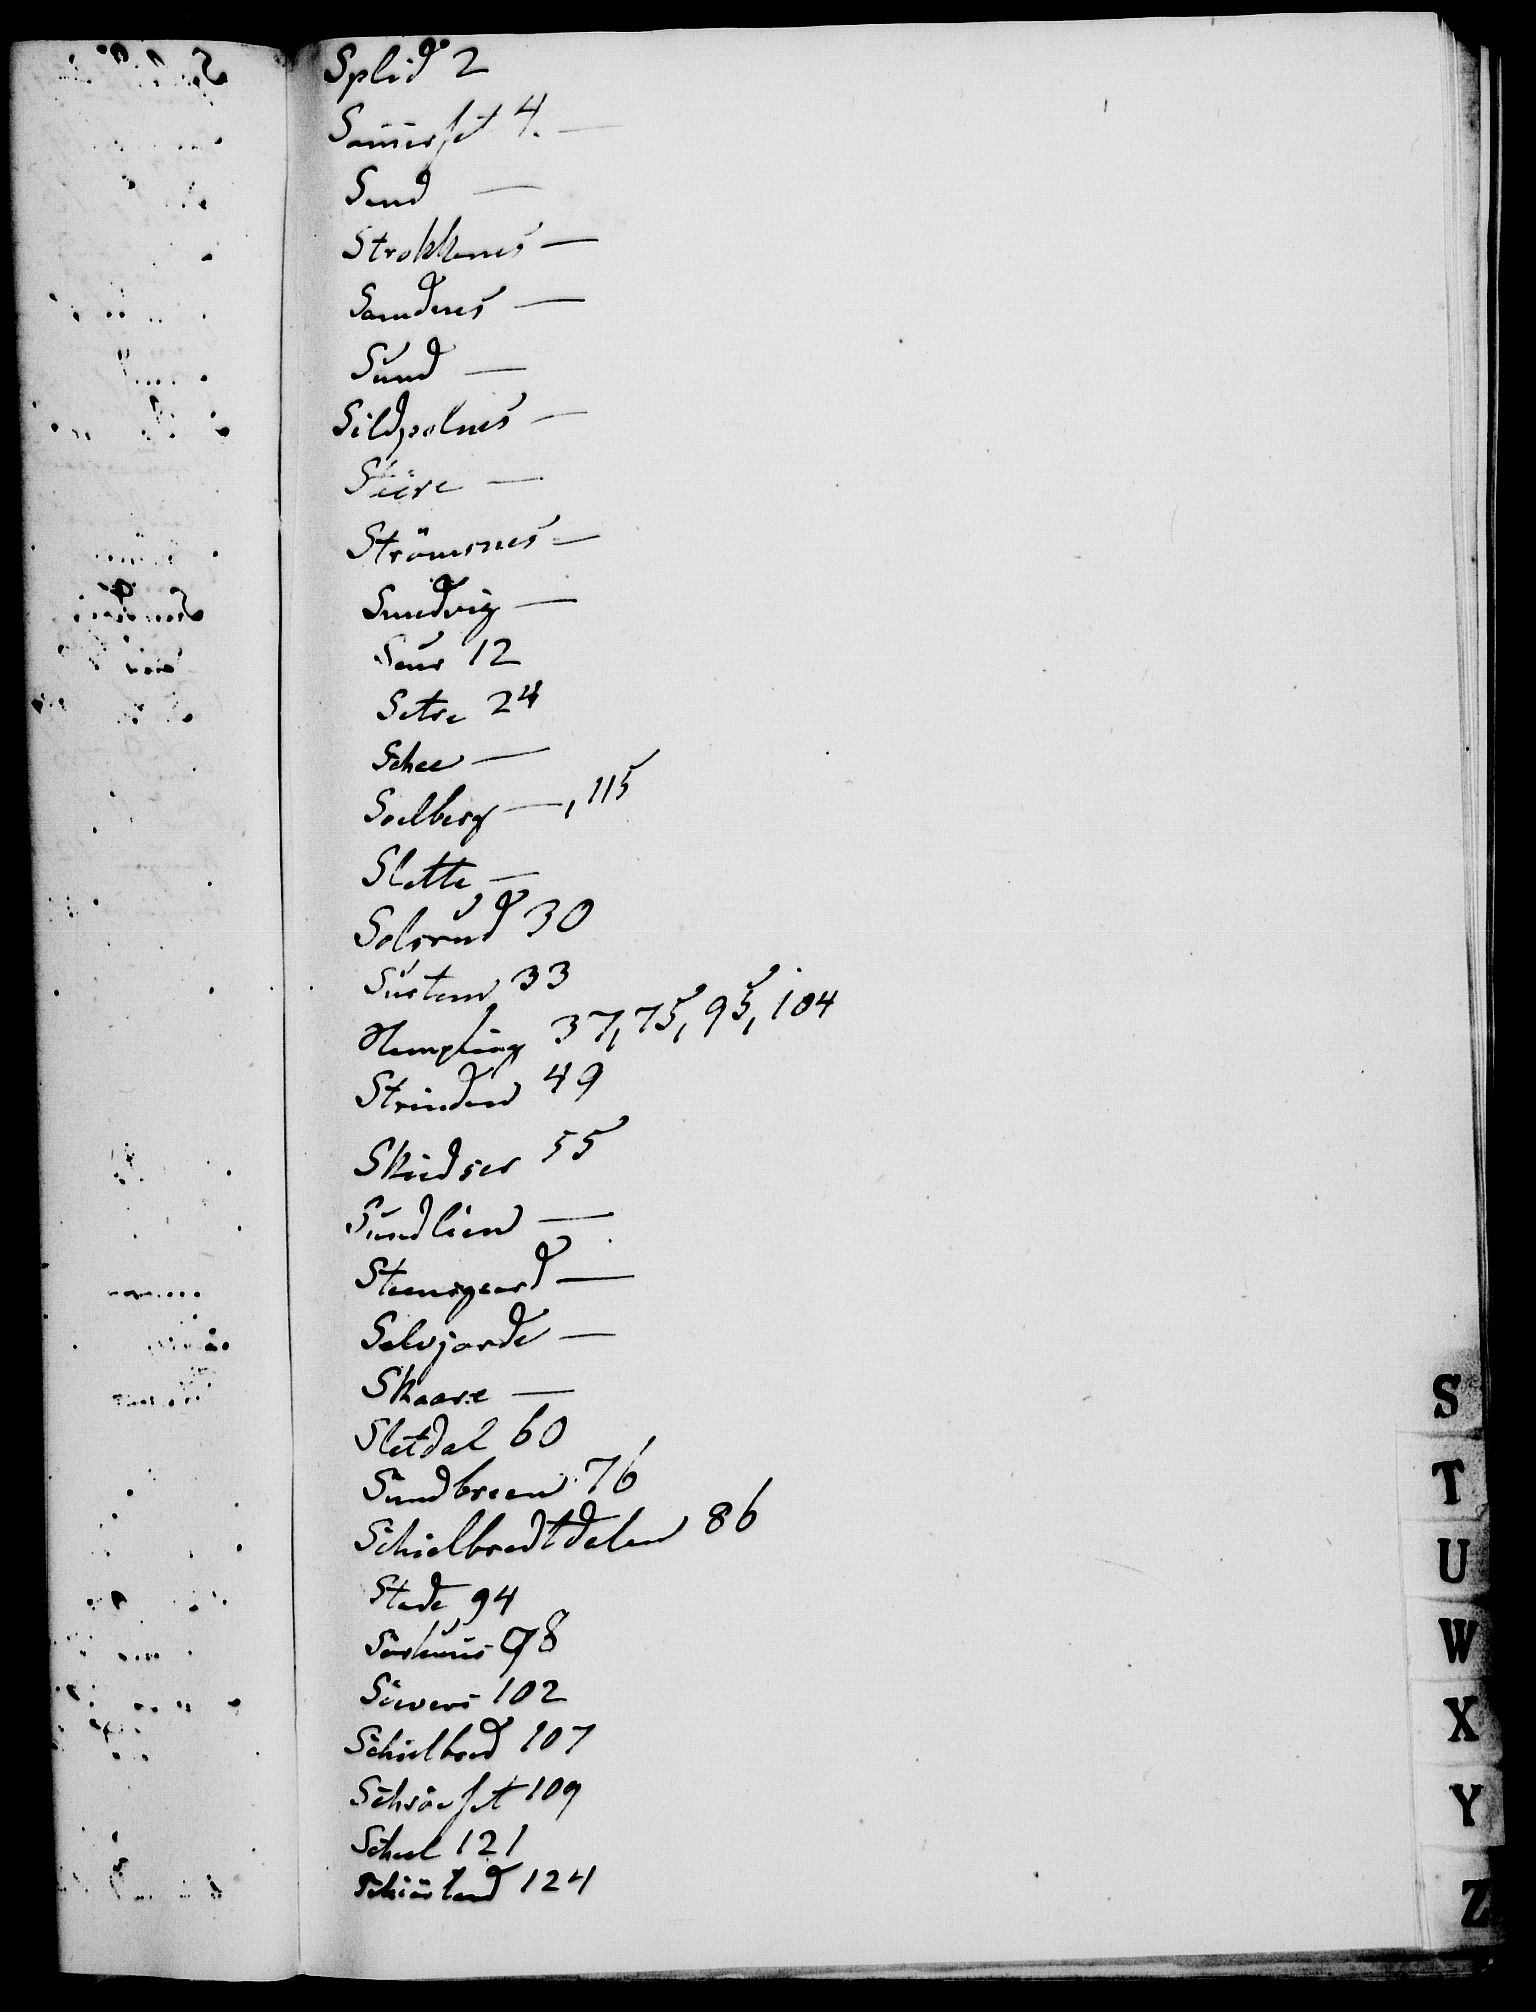 Splid 2
Somerset 4. —
Sand —
Strokkenes —
Sandnes —
Sund —
Sildpolnes —
Stüre —
Strömsnes —
Sundvig —
Saur 12
Setre 24
Schee —
Soelberg —, 115
Slette —
Solsrud 30
Susten 33
Stempling 37, 75, 95, 104
Strinden 49
Skiedser 55
Sundlien —
Steensgaard —
Selvjorde —
Skaare —
Sletdal 60
Sundbreen 76
Schielbredtdelen 86
Stade 94
Sørhuus 98
Sievers 102
Schielbred 107
Schröeset 109
Scheel 121
Schiösland 124
S
T
U
W
X
Y
Z